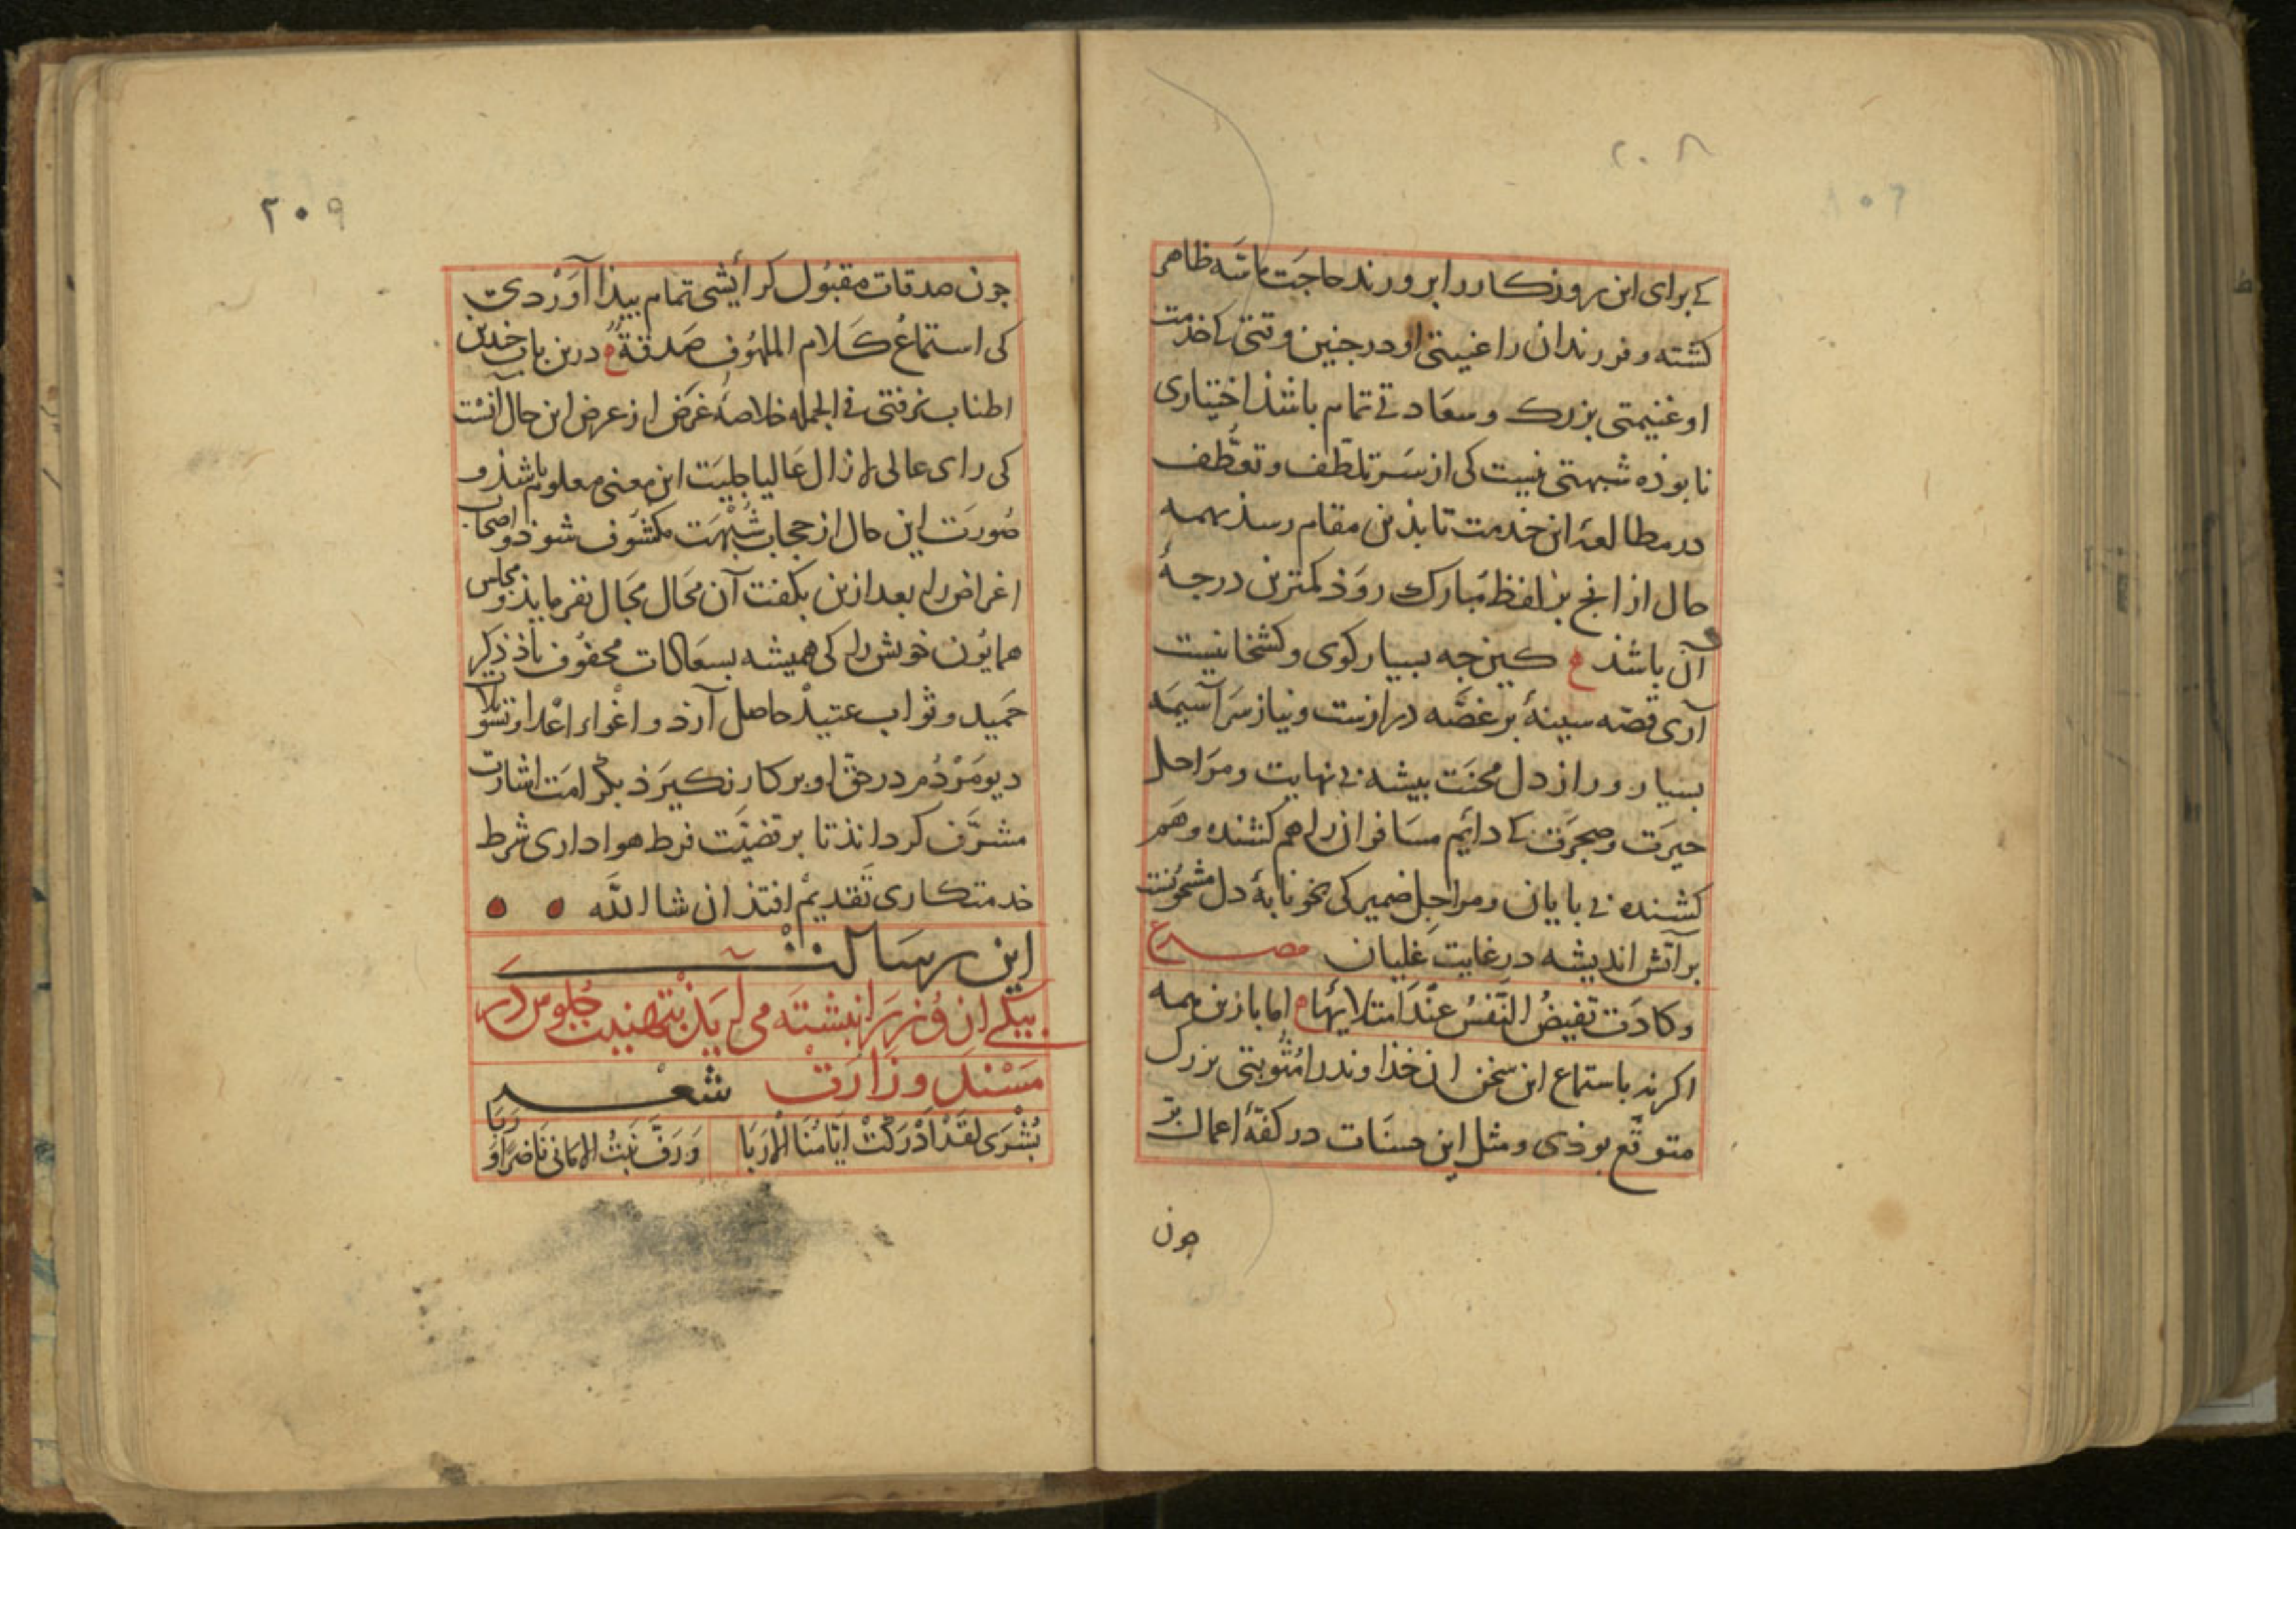 ۲۰۸
کی برای این روزکار را برورند حاجت ماسّه ظاهر
کشته و فرزندان را غیبتی او در جنین وقتی کی خدمت
او غنیمتی بزرک و سعادتی تمام باشذ اختیاری
نابوذه شبهتی نیست کی از سر تلطّف و تعطّف
در مطالعهٔ این خدمت تا بذین مقام رسذ همه
حال از انج بر لفظ مبارک روذ کمترین درجهٔ
آن باشذ ع کین جه بسیار کوی و کشخانیست
آری قصّه سینهٔ بر غصّه درازست و نیاز سرآسیمَه
بسیار و راز دل محنت بیشه بی نهایت و مراحل
حیرت و ضجرت کی دایم مسافران را هم کشنده و هم
کشنده بی بایان و مراجل ضمیر کی بخونابهٔ دل مشحونست
بر آتش اندیشه در غایت غلیان مصراع
وکادَت تفیضُ النّفسُ عنْدَ امتلایها ع اما با زین همه
اکر بر باستماع این سخن ان خذاوند را مثوبتی بزرک
متوقّع بوذی و مثل این حسنات در کفهٔ اعمال بر
جون
۲۰۹
جون صدقات مقبول کرایشی تمام بیذا آوردی
کی استماعُ کلام الملهوف صَدقةٌ ع درین باب جندین
اطناب نرفتی فی الجمله خلاصهٔ غرض از عرض این حال آنست
کی رای عالی لازال عالیا جلیت این معنی معلوم باشذ و
صورت این حال از حجاب شبهت مکشوف شوذ و اصحاب
اغراض را بعد ازین بکفت آن محال مجال نفرمایذ و مجلس
همایون خویش را کی همیشه بسعادات محفوف باذ ذکر
حمید و ثواب عتید حاصل آرذ و اغواء اعدا و تسویلات
دیو مردم در حقّ او بر کار نکیرذ بکرامت اشارت
مشرّف کرداند تا بر قضیّت فرط هواداری شرط
خدمتکاری تقدیم افتذ ان شا الله
این رسالت
بیکی از وُزرا نبشته می آید بتهنیت جلوس در
مسند وزارت شعر
بُشْرَی لقَدْ اَدْرَکَتْ اَیّامُنَا الاَرَبَا وَرَفَّ نَبتُ الامانی نَاضرًا و رَبَا